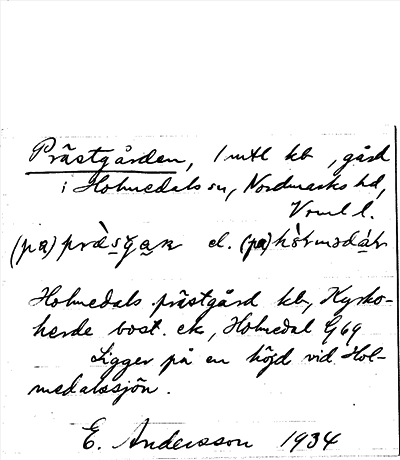 Prästgården, 1 mtl kb, gård
i Holmedals sn, Nordmarks hd,
Vrml l.
(pa) el. (pa)
Holmedals prästgård kb, Kyrko-
herde bost. ek, Holmedal G69
Ligger på en höjd vid Hol-
medalssjön.
E. Andersson 1934